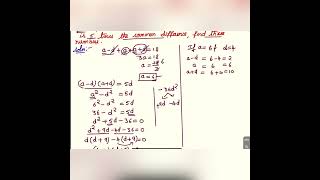 is 5 times the common difference, find three
numbers.
Soln:-
a-d+a+a+d=18
3a=18
a=18/3 6
a=6
(a-d)(a+d)=5d
a²-d²=5d
6²-d²=5d
36-d²=5d
d²+5d-36=0
d²+9d-4d-36=0
d(d+9)-4(d+9)=0
-36d²
+9d -4d
If a=6 & d=4
a-d=6-4=2
a=6=6
a+d=6+4=10